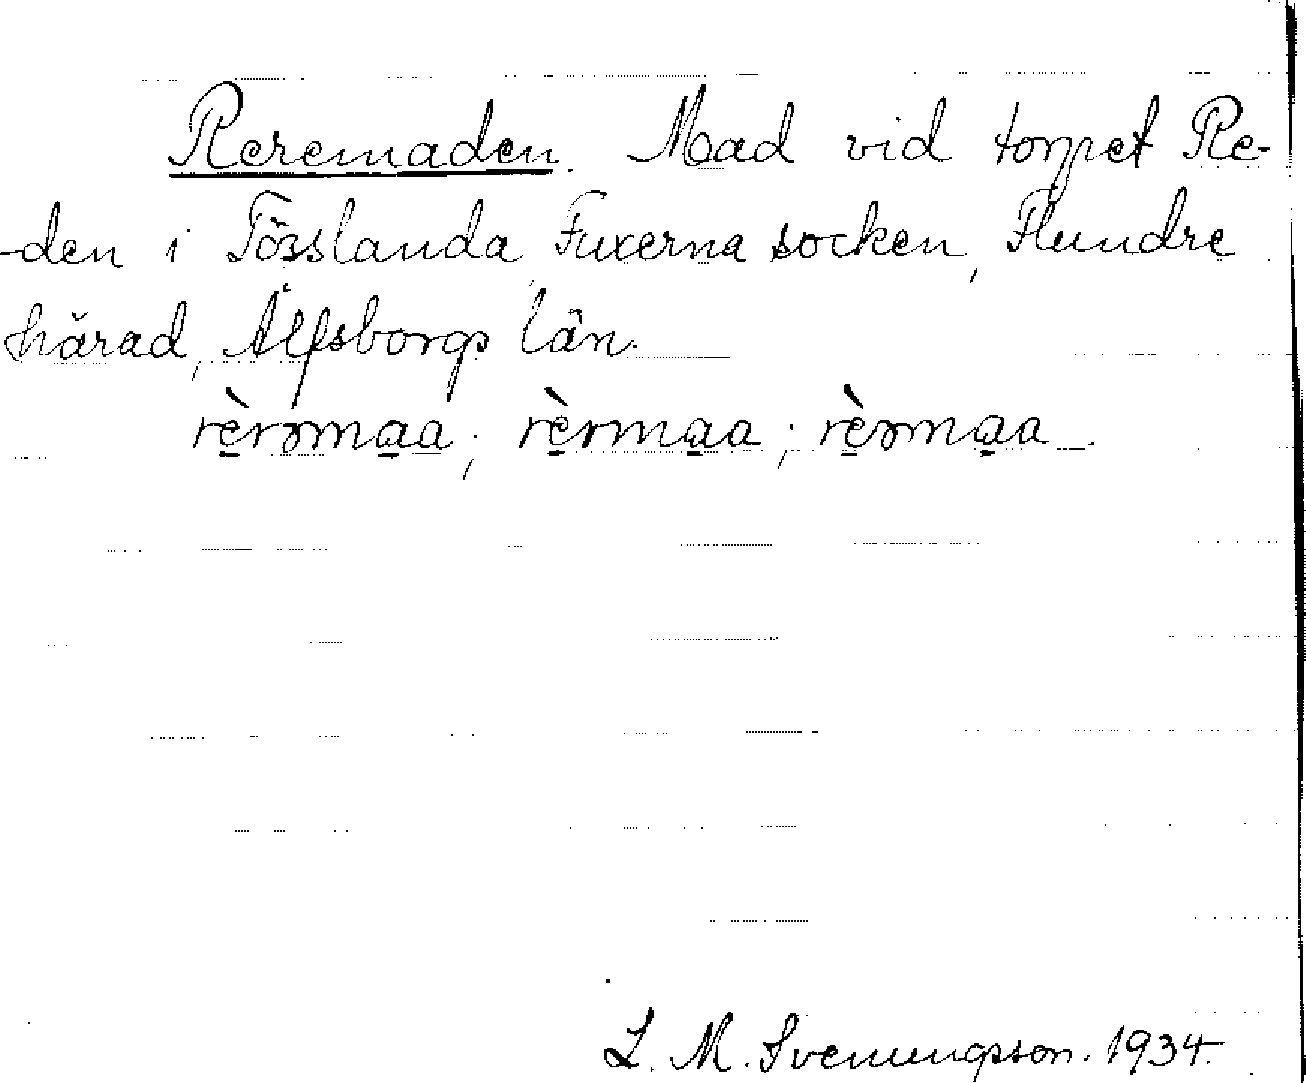 Reremaden. Mad vid torpet Re-
-den i Tösslanda, Fuxerna socken, Flundre
härad, Älfsborgs län.
rèrəmaa; rèrmaa; rèəmaa.
L. M. Svenungsson. 1934.